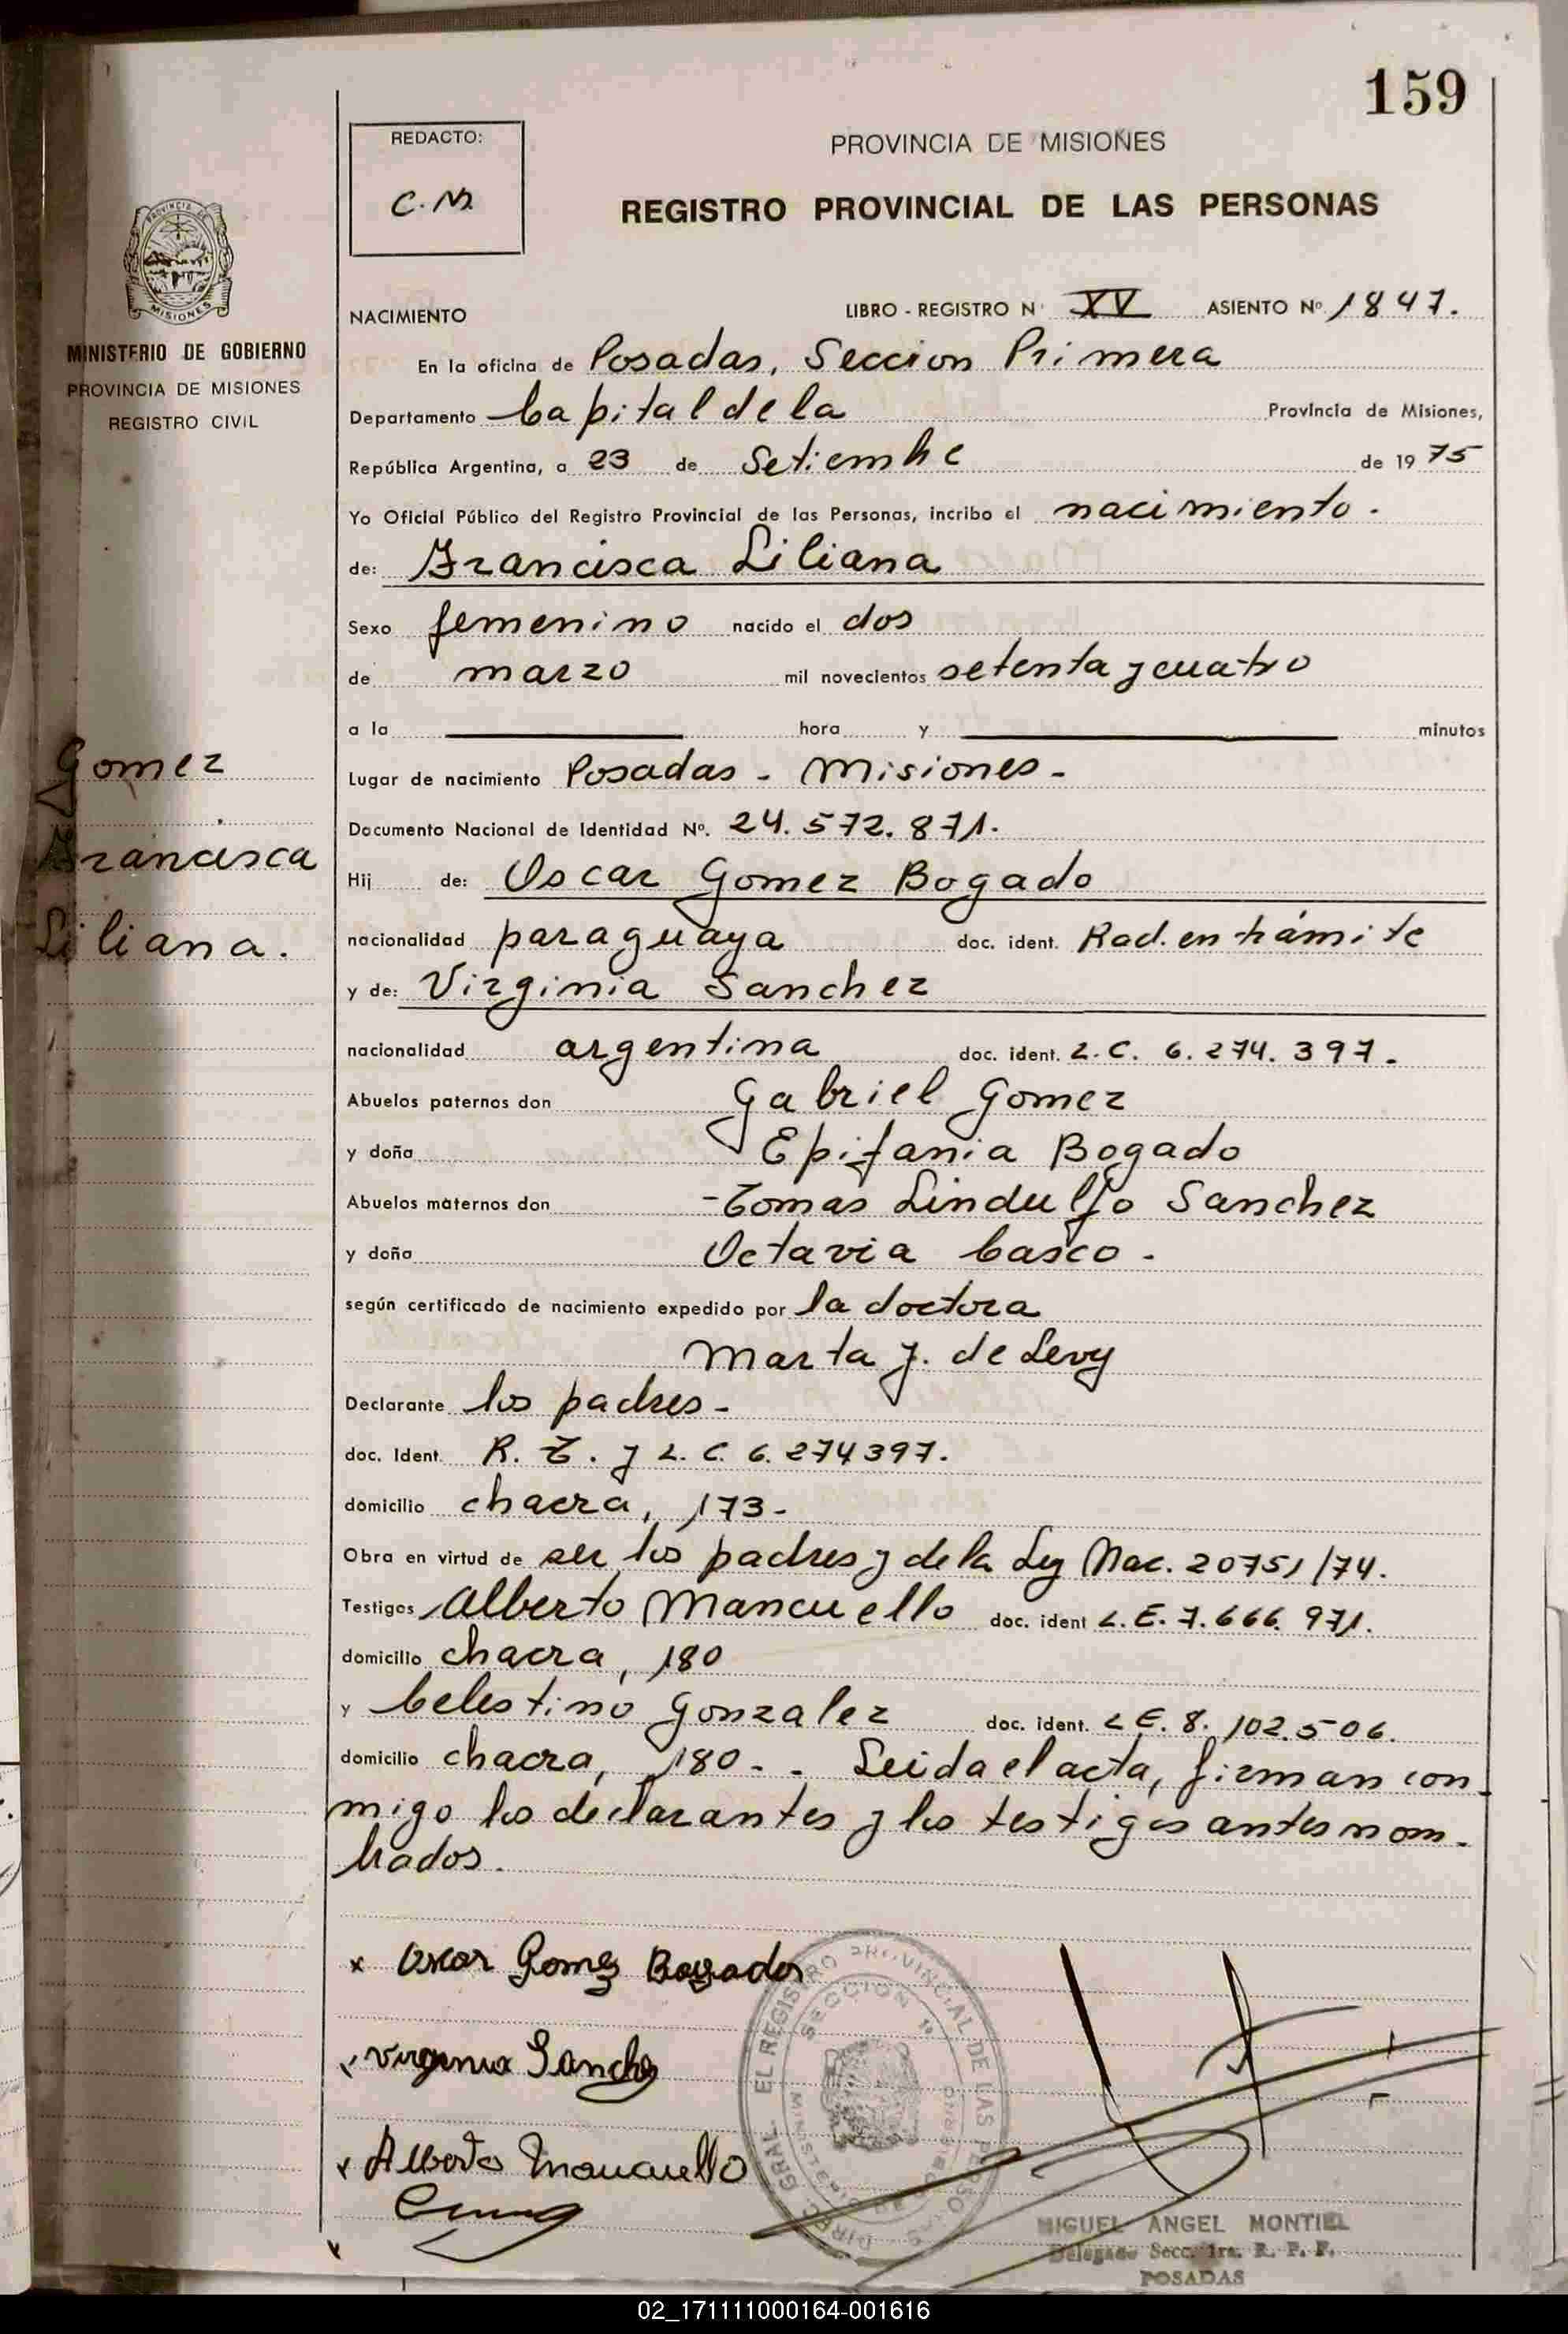 159
REDACTO:
C. M.
PROVINCIA DE MISIONES
REGISTRO PROVINCIAL DE LAS PERSONAS
PROVINCIA DE
MISIONES
MINISTERIO DE GOBIERNO
PROVINCIA DE MISIONES
REGISTRO CIVIL
NACIMIENTO LIBRO - REGISTRO N° XV ASIENTO Nº 1847.
En la oficina de Posadas, Seccion Primera
Departamento Capital de la Provincia de Misiones,
República Argentina, a 23 de Setiembre de 1975
Yo Oficial Público del Registro Provincial de las Personas, incribo el nacimiento.
de: Francisca Liliana
Sexo femenino nacido el dos
de marzo mil novecientos setenta y cuatro
a la hora y minutos
Gomez
Francisca
Liliana.
Lugar de nacimiento Posadas - Misiones -
Documento Nacional de Identidad Nº. 24.572.871.
Hij de: Oscar Gomez Bogado
nacionalidad paraguaya doc. ident. Rad. en trámite
y de: Virginia Sanchez
nacionalidad argentina doc. ident. L.C. 6.274.397.
Abuelos paternos don Gabriel Gomez
y doña Epifania Bogado
Abuelos maternos don Tomas Lindulfo Sanchez
y doña Octavia Casco.
según certificado de nacimiento expedido por la doctora
Marta J. de Levy
Declarante los padres -
doc. Ident. R. T. y L. C. 6.274397.
domicilio chacra, 173 -
Obra en virtud de ser los padres y de la Ley Nac. 20751/74.
Testigos Alberto Mancuello doc. ident L.E. 7.666.971.
domicilio chacra, 180
y Celestino Gonzalez doc. ident. L E. 8.102.506.
domicilio chacra, 180 - . Leida el acta, firman con-
migo los declarantes y los testigos antes nom-
brados.
x Oscar Gomez Bogado
Virginia Sanchez
Alberto Mancuello
DIREC. GRAL. EL REGISTRO PROVINCIAL DE LAS PERSONAS
SECCION 1ª
MIGUEL ANGEL MONTIEL
Delegado Secc. 1ra. R. P. P.
POSADAS
02_171111000164-001616